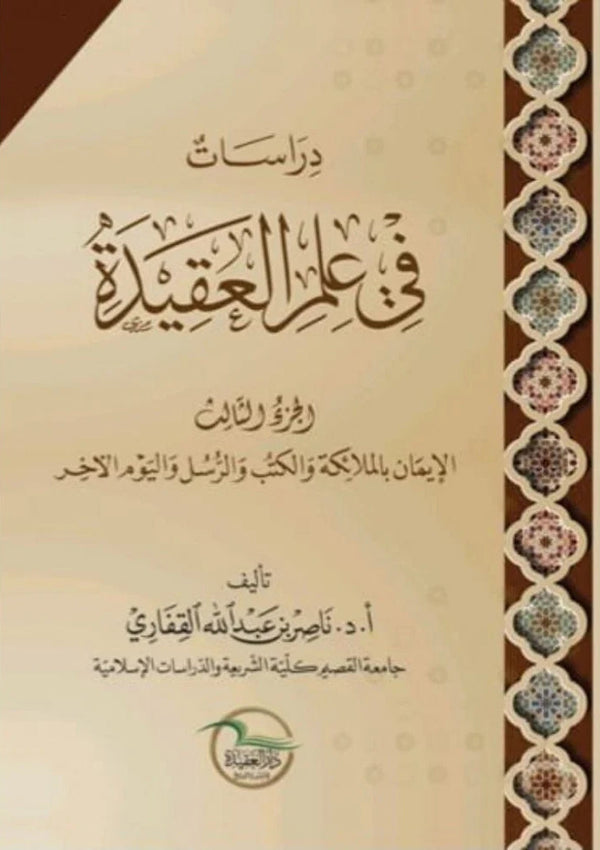 دِرَاسَاتٌ
فِي عِلْمِ الْعَقِيدَةِ
الجزءُ الثَّالِث
الإيمَان بالملائِكة وَالكتُب وَالرُّسُل وَاليَوْم الآخِر
تأليف
أ. د. نَاصِر بن عَبْدالله القِفَارِي
جامعة القصيم كليّة الشّريعة والدّراسات الإسلاميّة
دَارُ العَقِيدَة